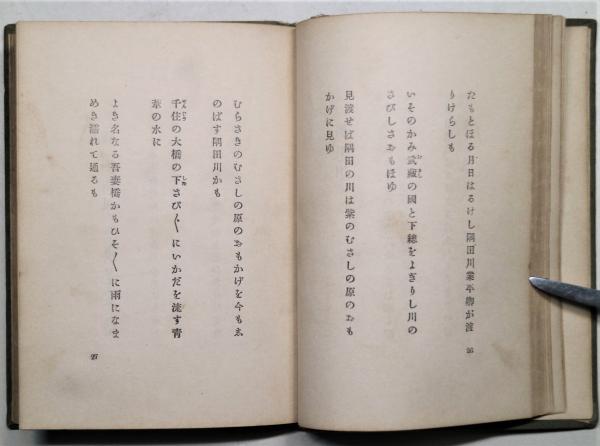 たもとほる月日はるけし隅田川業平卿が渡
りけらしも
いそのかみ武藏の國と下總をよぎりし川の
さびしさおもほゆ
見渡せば隅田の川は紫のむさしの原のおも
かげに見ゆ
26
むらさきのむさしの原のおもかげを今もゑ
のばす隅田川かも
千住の大橋の下さび〳〵にいかだを流す青
葦の水に
よき名なる吾妻橋かもひそ〳〵に雨になま
めき濡れて通るも
27